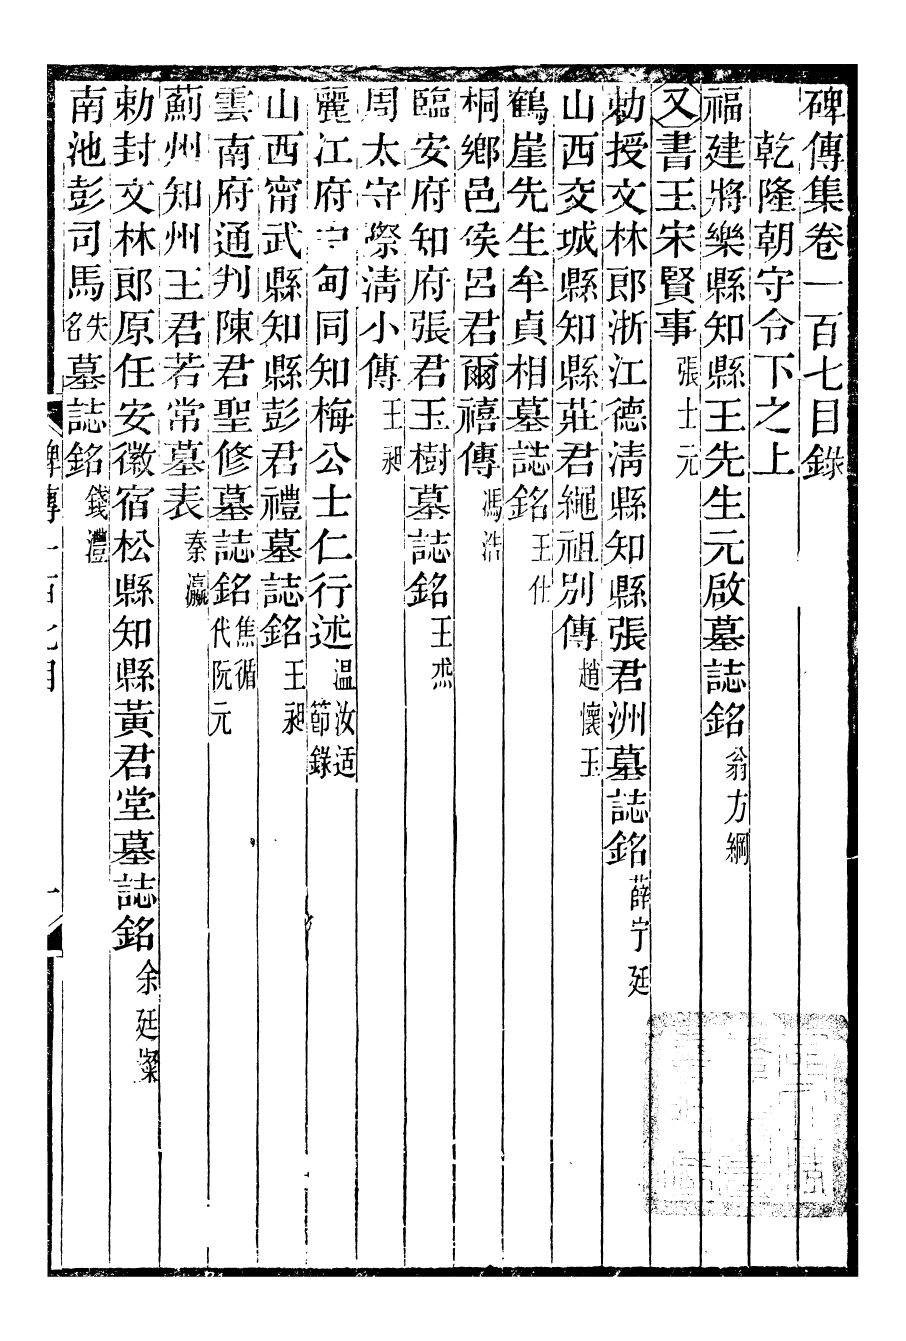 碑傳集卷一百七目錄
乾隆朝守令下之上
福建將樂縣知縣王先生元啟墓誌銘 翁方綱
又書王宋賢事 張士元
勅授文林郎浙江德清縣知縣張君洲墓誌銘 薛宁廷
山西交城縣知縣莊君繩祖別傳 趙懷玉
鶴崖先生牟貞相墓誌銘 王仕
桐鄉邑侯呂君爾禧傳 馮浩
臨安府知府張君玉樹墓誌銘 王杰
周太守際清小傳 王昶
麗江府中甸同知梅公士仁行述 温汝适節錄
山西甯武縣知縣彭君禮墓誌銘 王昶
雲南府通判陳君聖修墓誌銘 焦循代阮元
薊州知州王君若常墓表 秦瀛
勅封文林郎原任安徽宿松縣知縣黃君堂墓誌銘 余廷燦
南池彭司馬失名墓誌銘 錢灃
碑傳一百七目
一